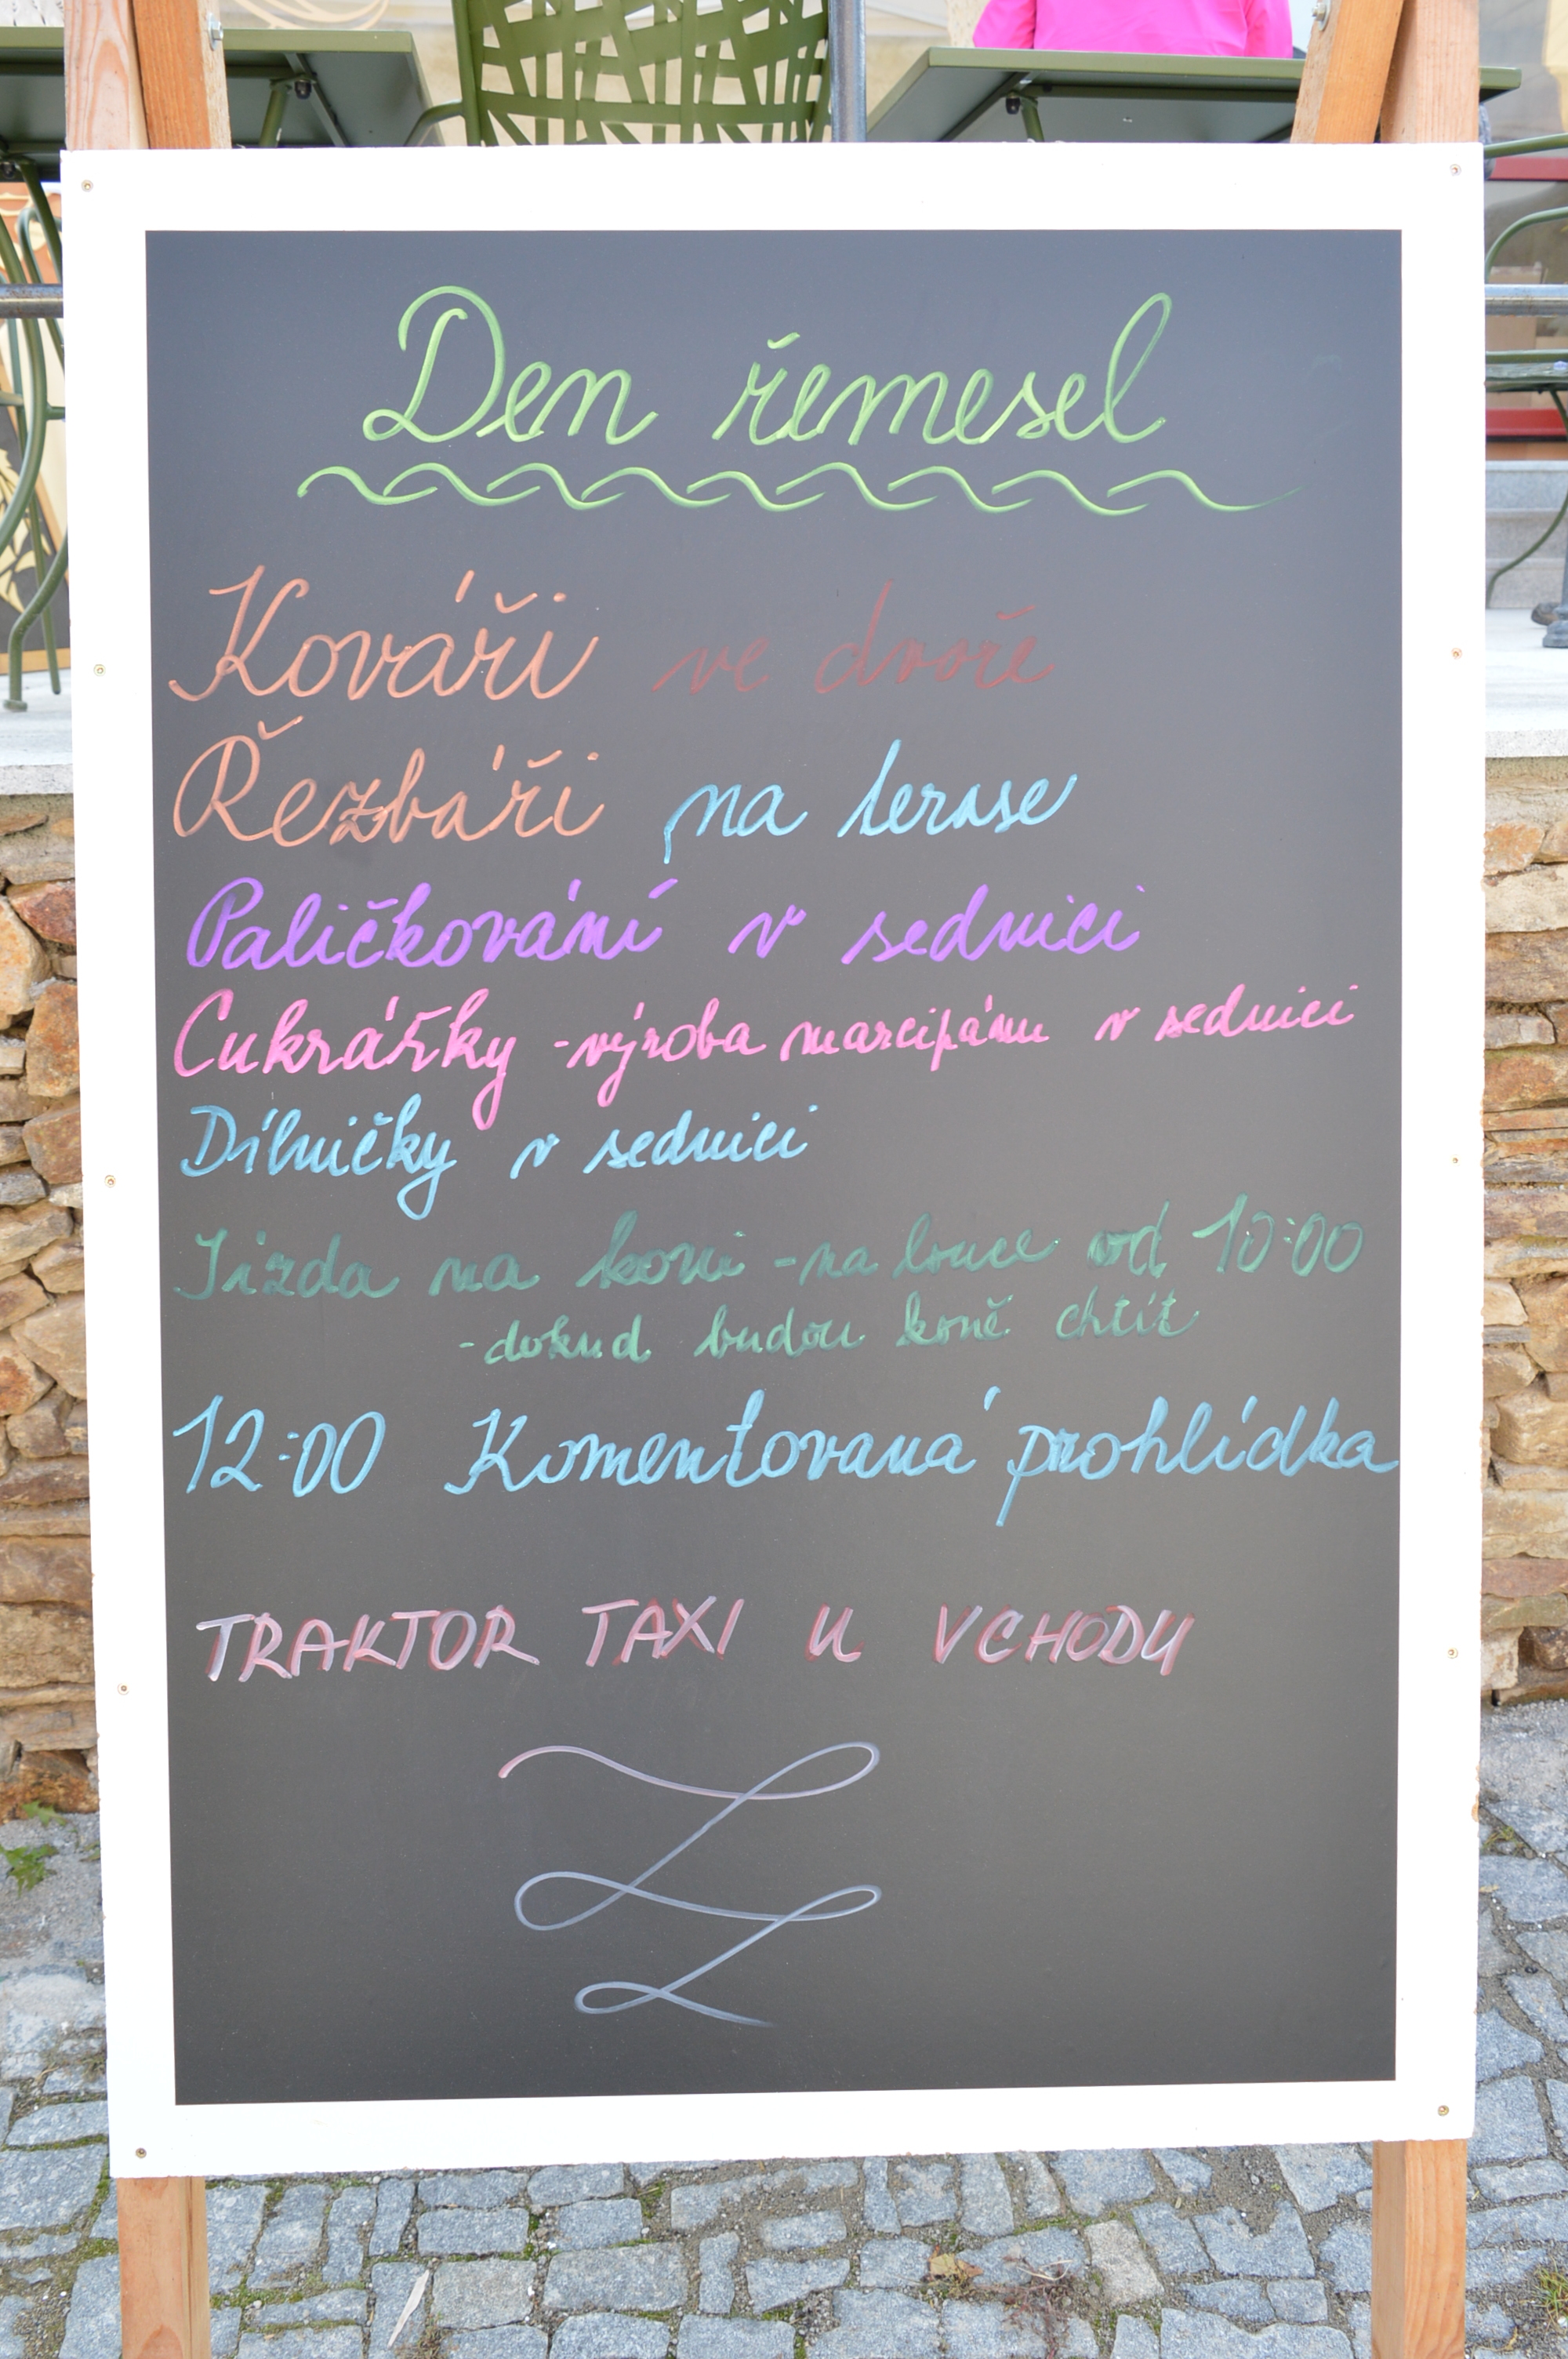 Den řemesel
Kováři ve dvoře
Řezbáři na terase
Paličkování v sednici
Cukrářky - výroba marcipánu v sednici
Dílničky v sednici
Jízda na koni - na louce od 10:00
- dokud budou koně chtít
12:00 Komentovaná prohlídka
TRAKTOR TAXI U VCHODU